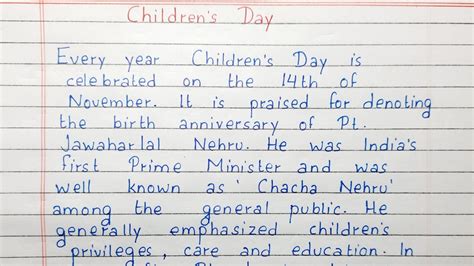 Children's Day
Every year Children's Day is
celebrated on the 14th of
November. It is praised for denoting
the birth anniversary of Pt.
Jawaharlal Nehru. He was India's
first Prime Minister and was
well known as 'Chacha Nehru'
among the general public. He
generally emphasized children's
privileges, care and education. In